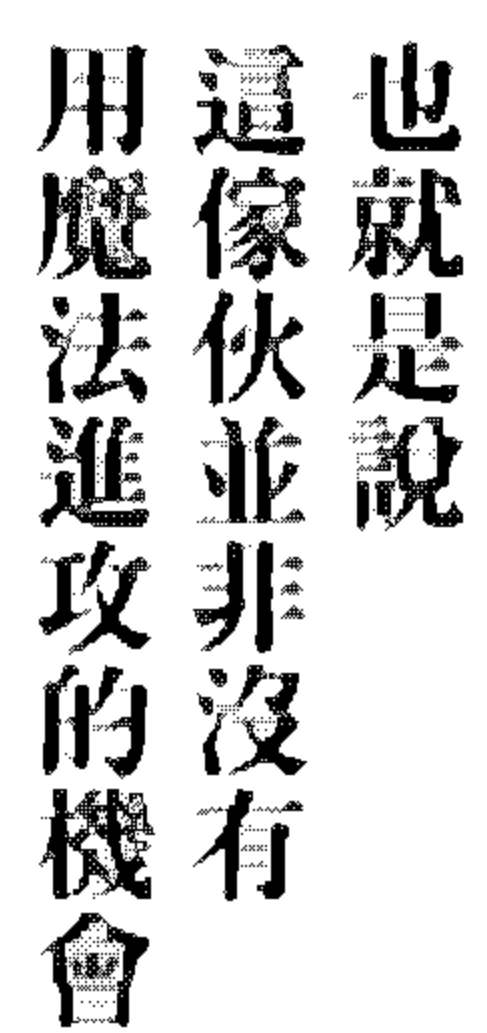 也就是說
這傢伙並非沒有
用魔法進攻的機會